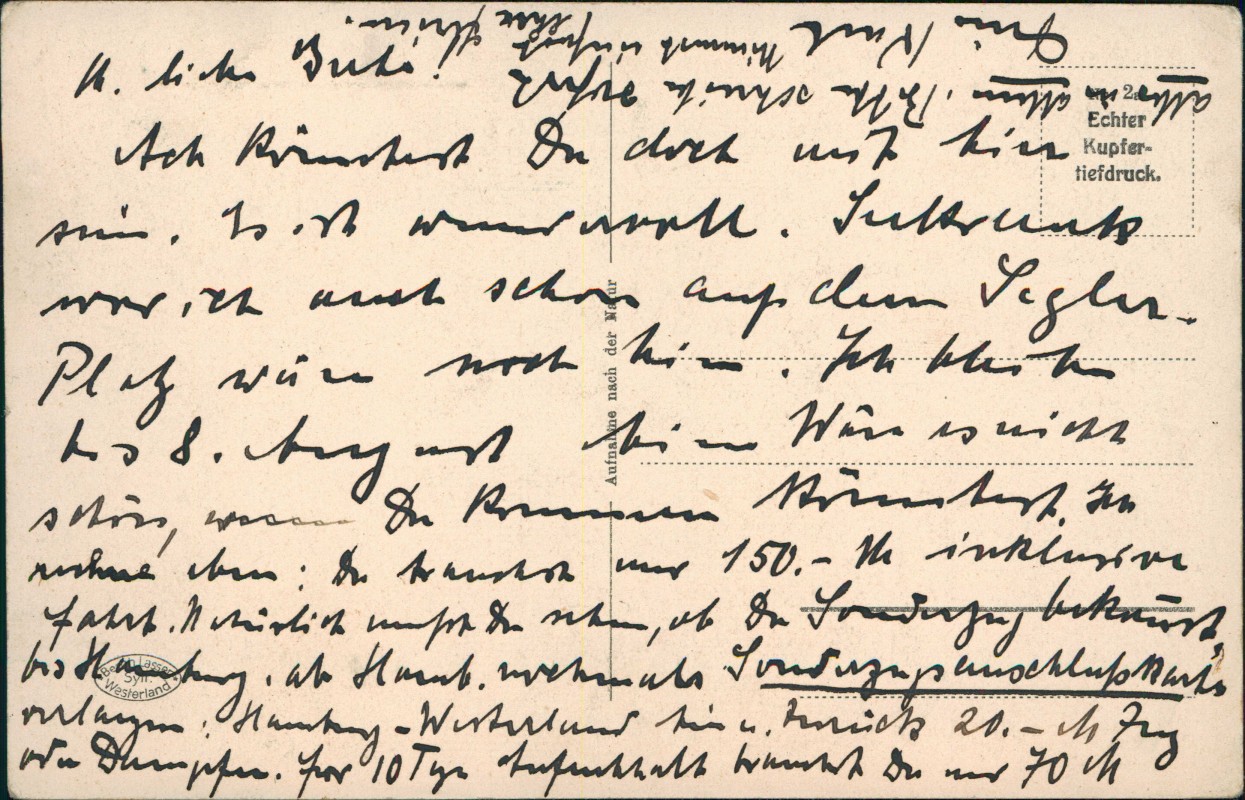 M. liebe Beti!
Ach könntest Du doch mit hier
sein. Es ist wundervoll.
war ich auch schon auf dem Segler.
Platz wäre noch hier. Ich bleibe
bis 8. August hier Wäre es nicht
schön, wenn Du kommen könntest. Ich
rechne eben: Du brauchst nur 150.- M inklusive
Fahrt. Natürlich musst Du sehen, ob Du Sonderzug bekommst,
bis Hamburg. ab Hamb. nochmals Sonderzugsanschlußkarte
verlangen: Hamburg-Westerland hin u. zurück 20.- M Zug
oder Dampfer. für 10 Tage Aufenthalt brauchst Du nur 70 M
alles in allem. Bitte schreibe sofort
Echter
Kupfer-
tiefdruck.
Aufnahme nach der Natur
Sylt
Westerland